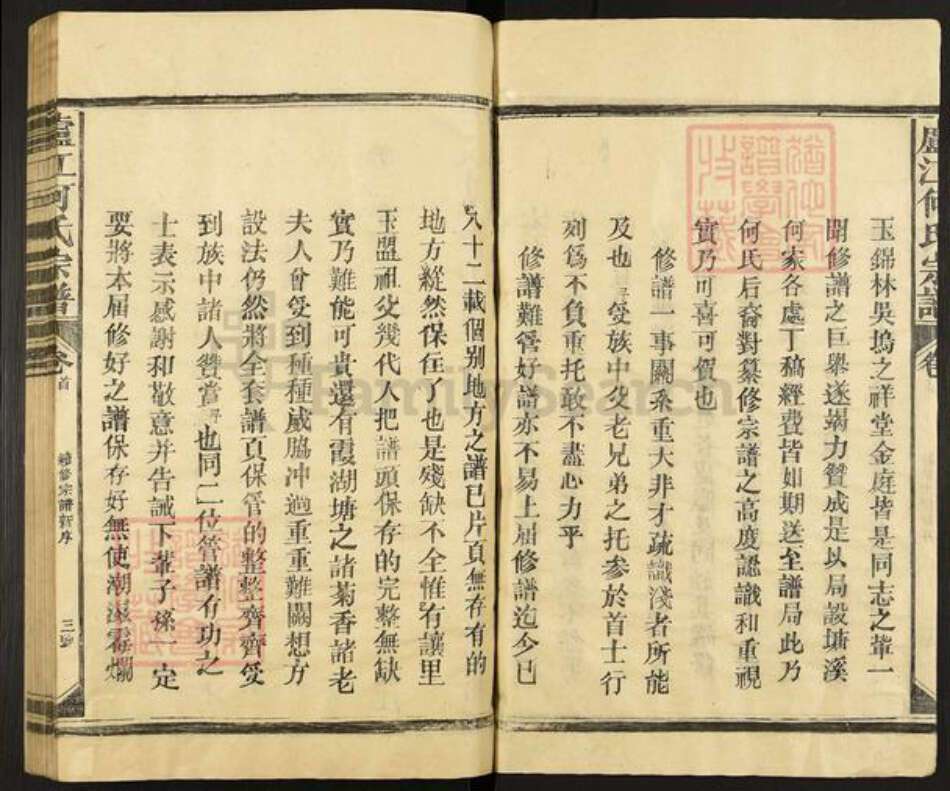 廬江何氏宗譜
卷
玉錦林吳塢之祥堂金庭皆是同志之輩一
聞修譜之巨舉遂竭力贊成是以局設塘溪
何家各處丁稿經費皆如期送至譜局此乃
何氏后裔對纂修宗譜之高度認識和重視
實乃可喜可賀也
修譜一事關系重大非才疏識淺者所能
及也受族中父老兄弟之托參於首士行
列爲不負重托敢不盡心力乎
修譜難管好譜亦不易上屆修譜迄今已
八十二載個别地方之譜已片頁無存有的
地方縱然保存了也是殘缺不全惟有讓里
玉盟祖父幾代人把譜頭保存的完整無缺
實乃難能可貴還有霞湖塘之諸菊香諸老
夫人曾受到種種威脇冲過重重難關想方
設法仍然將全套譜頁保管的整整齊齊受
到族中諸人贊嘗也同二位管譜有功之
士表示感謝和敬意并告誡下輩子孫一定
要將本屆修好之譜保存好無使潮濕霉爛
廬江何氏宗譜
卷首
續修宗譜新序
三
FamilySearch